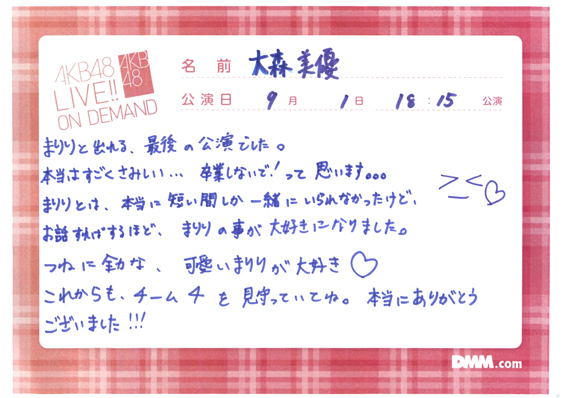 AKB48
LIVE!!
ON DEMAND
AKB
48
名前 大森美優
公演日 9月 1日 18:15 公演
まりりと出れる、最後の公演でした。
本当はすごくさみしい… 卒業しないで!って思います。。。
まりりとは、本当に短い間しか一緒にいられなかったけど、
お話すればするほど、まりりの事が大好きになりました。
つねに全力な、可愛いまりりが大好き♡
これからも、チーム4を見守っていてね。本当にありがとう
ございました!!!
DMM.com